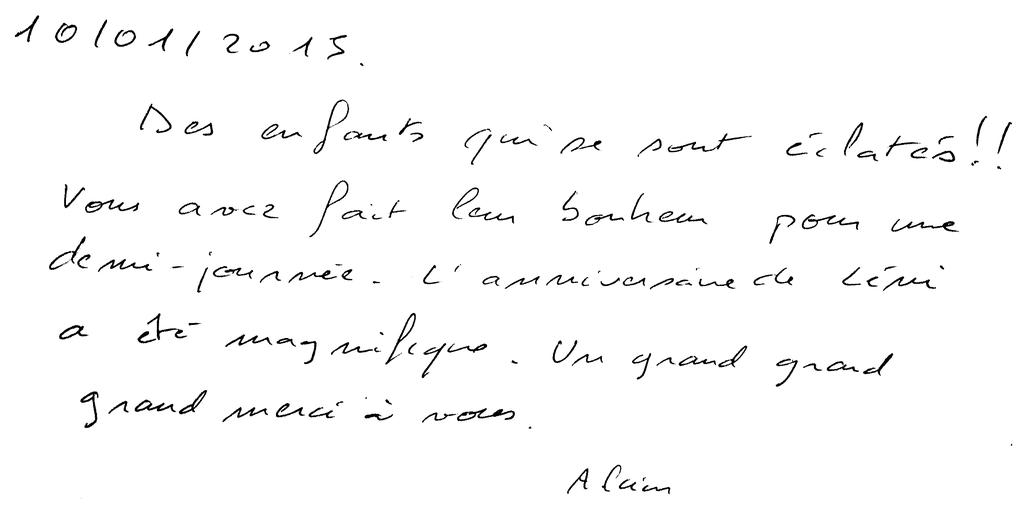 10/01/2015.
Des enfants qui se sont éclatés!!
Vous avez fait leur bonheur pour une
demi-journée. L'anniversaire de
a été magnifique. Un grand grand
grand merci à vous.
Alain